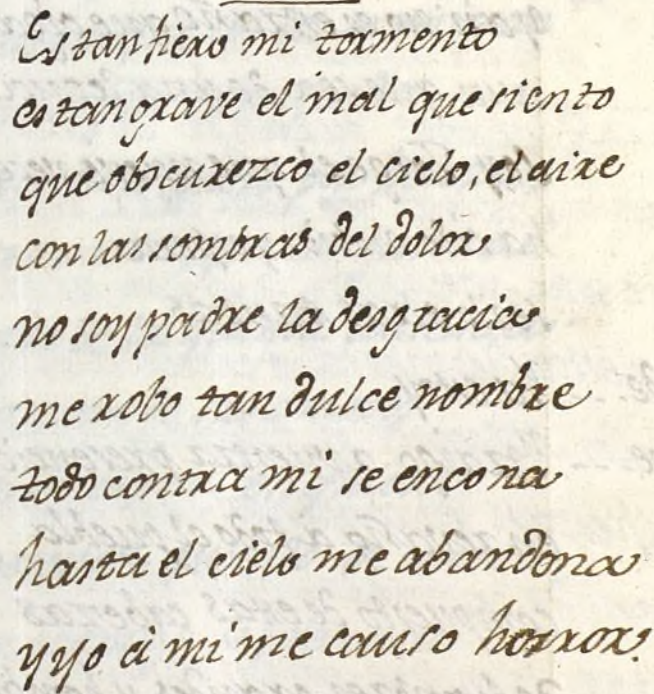 Es tan fiero mi tormento
es tan grave el mal que siento
que obscurezco el cielo, el aire
con las sombras del dolor
no soy padre la desgracia
me robo tan dulce nombre
todo contra mi se encona
hasta el cielo me abandona
y yo á mi me causo horror.